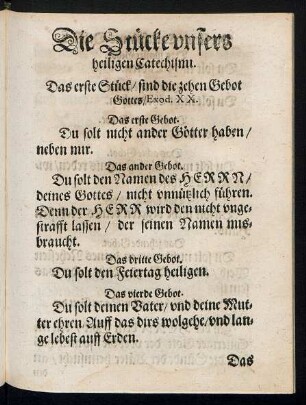 Die Stücke vnsers
heiligen Catechismi.
Das erste Stück / sind die zehen Gebot
Gottes / Exod. XX.
Das erste Gebot.
Du solt nicht ander Götter haben /
neben mir.
Das ander Gebot.
Du solt den Namen des HERRN /
deines Gottes / nicht vnnützlich führen.
Denn der HERR wird den nicht vnge-
strafft lassen / der seinen Namen mis-
braucht.
Das dritte Gebot.
Du solt den Feiertag heiligen.
Das vierde Gebot.
Du solt deinen Vater / vnd deine Mut-
ter ehren. Auff das dirs wolgehe / vnd lan-
ge lebest auff Erden.
Das